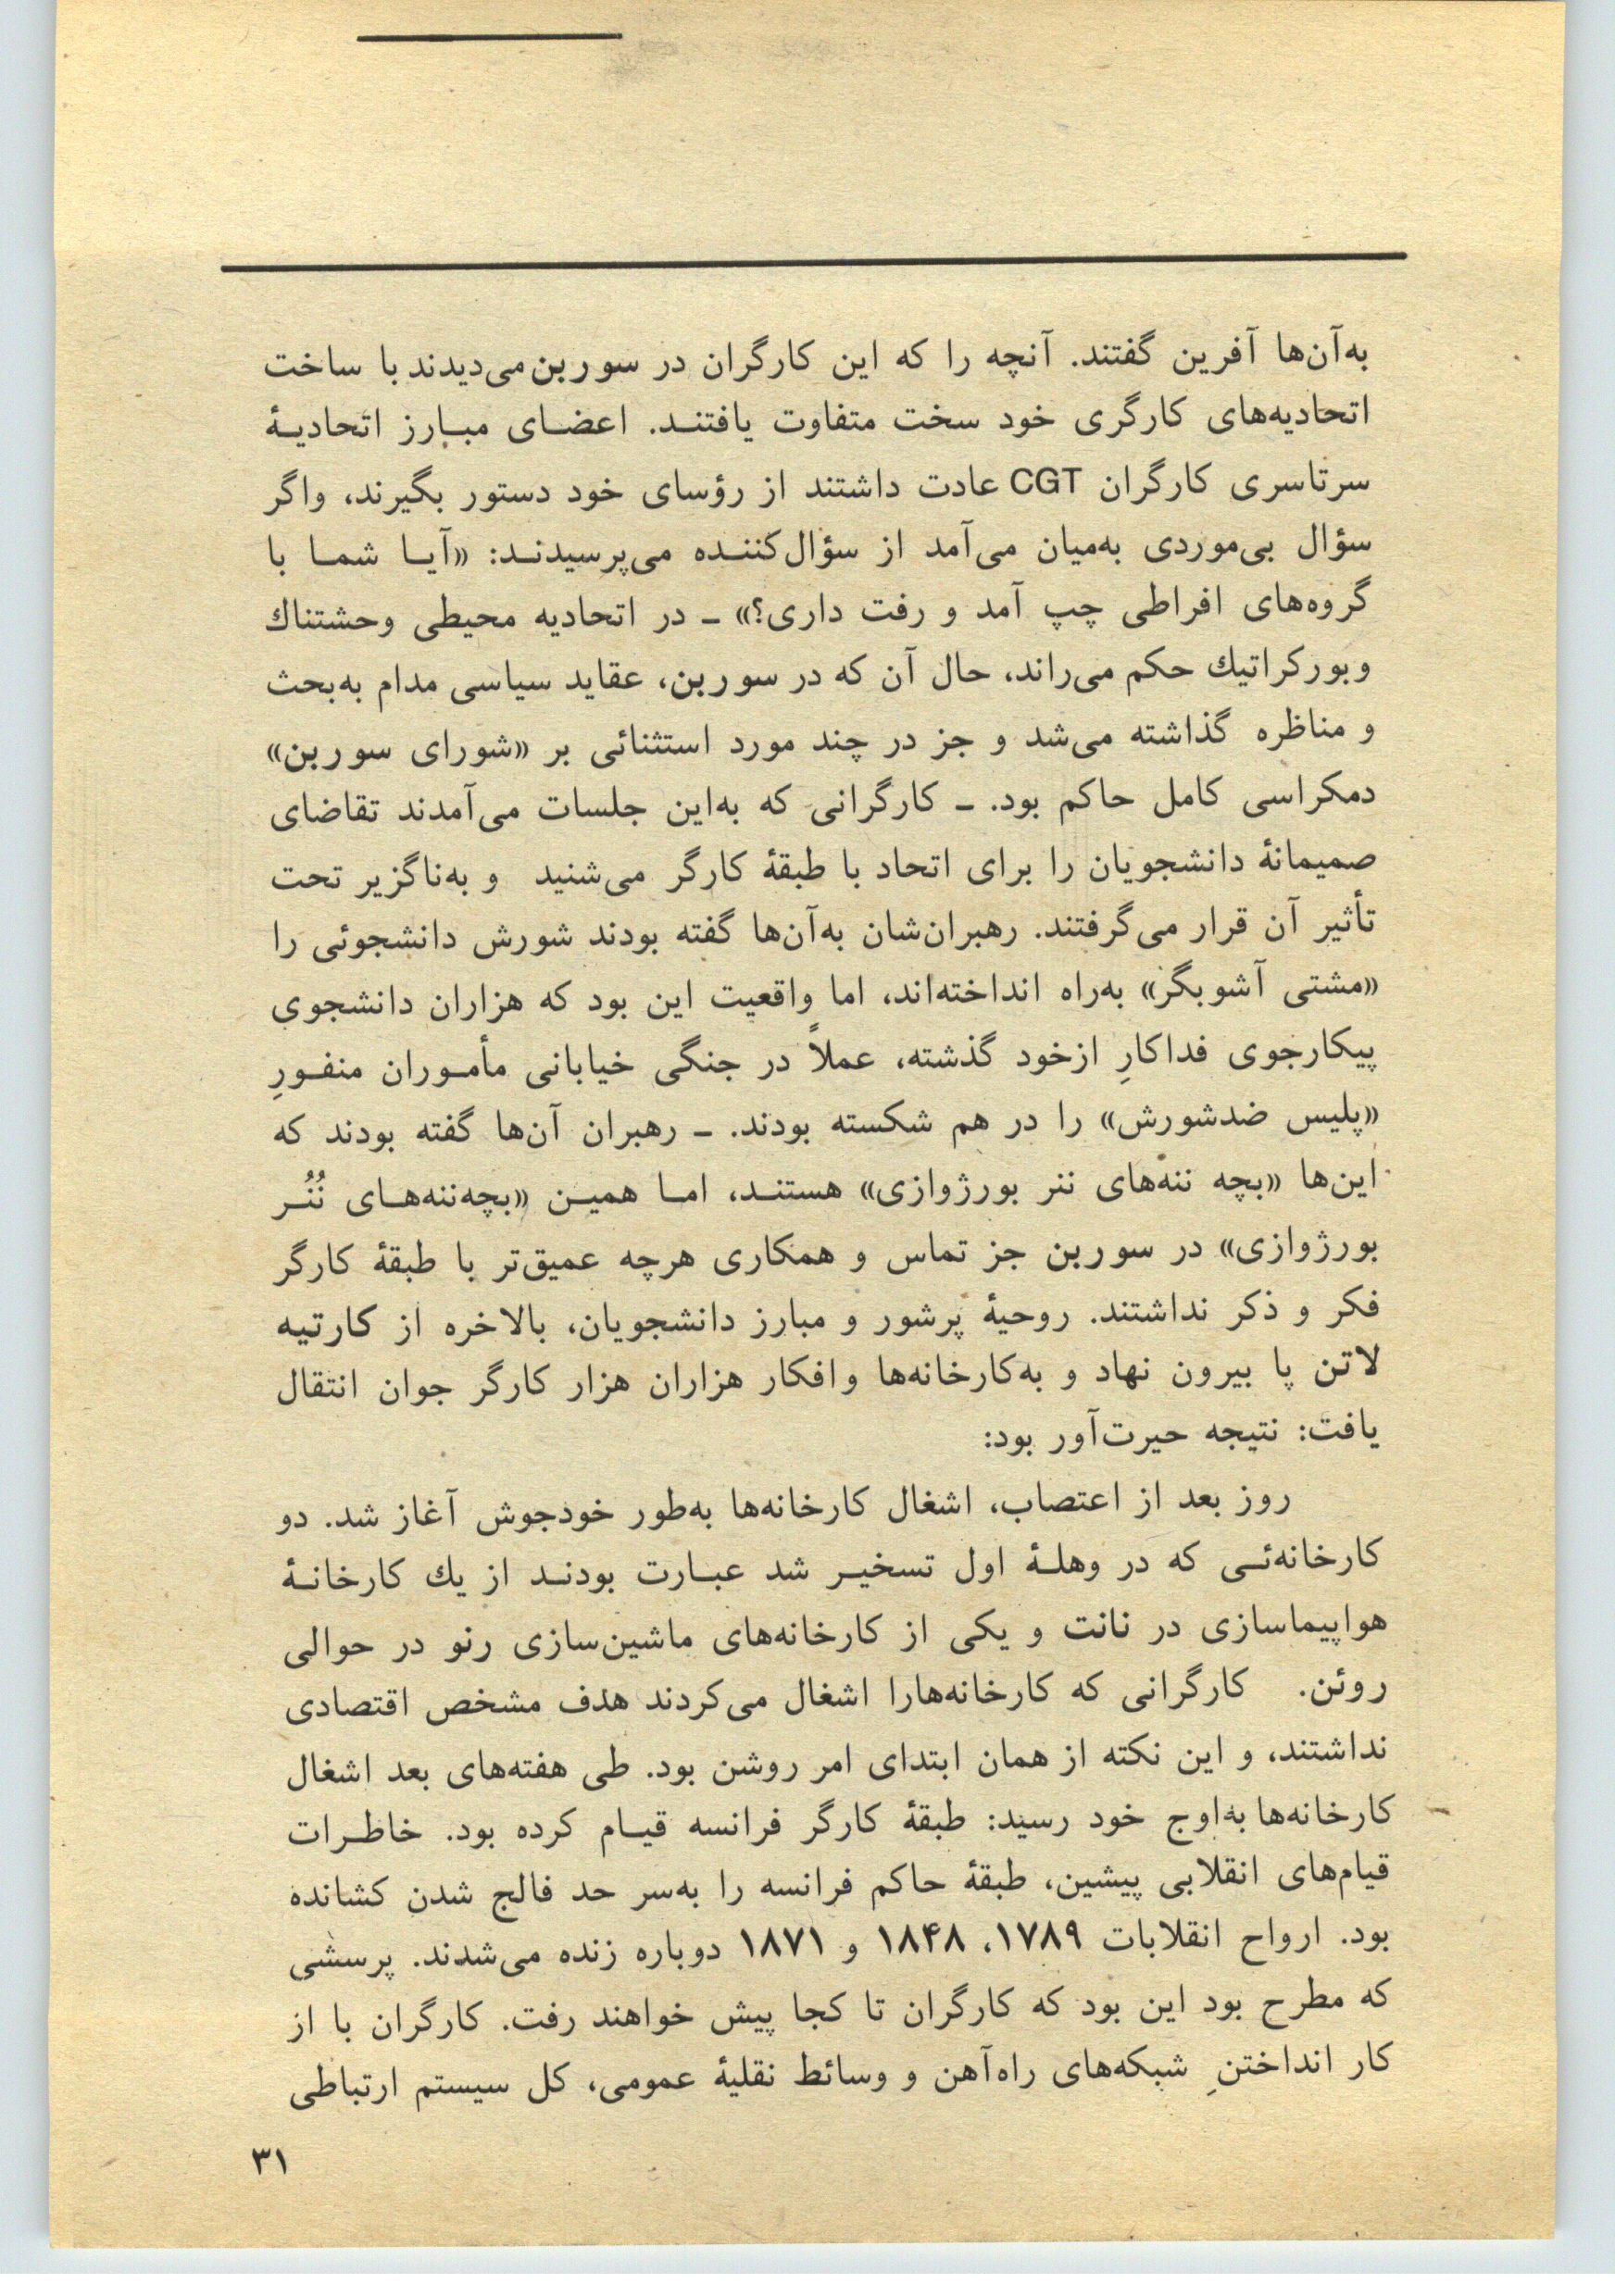 به‌آن‌ها آفرین گفتند. آنچه را که این کارگران در سوربن می‌دیدند با ساخت
اتحادیه‌های کارگری خود سخت متفاوت یافتند. اعضای مبارز اتحادیهٔ
سرتاسری کارگران CGT عادت داشتند از رؤسای خود دستور بگیرند، واگر
سؤال بی‌موردی به‌میان می‌آمد از سؤال‌کننده می‌پرسیدند: «آیا شما با
گروه‌های افراطی چپ آمد و رفت داری؟» ـ در اتحادیه محیطی وحشتناك
وبورکراتیك حکم می‌راند، حال آن که در سوربن، عقاید سیاسی مدام به‌بحث
و مناظره گذاشته می‌شد و جز در چند مورد استثنائی بر «شورای سوربن»
دمکراسی کامل حاکم بود. ـ کارگرانی که به‌این جلسات می‌آمدند تقاضای
صمیمانهٔ دانشجویان را برای اتحاد با طبقهٔ کارگر می‌شنید و به‌ناگزیر تحت
تأثیر آن قرار می‌گرفتند. رهبران‌شان به‌آن‌ها گفته بودند شورش دانشجوئی را
«مشتی آشوبگر» به‌راه انداخته‌اند، اما واقعیت این بود که هزاران دانشجوی
پیکارجوی فداکارِ ازخود گذشته، عملاً در جنگی خیابانی مأموران منفورِ
«پلیس ضدشورش» را در هم شکسته بودند. ـ رهبران آن‌ها گفته بودند که
این‌ها «بچه ننه‌های ننر بورژوازی» هستند، اما همین «بچه‌ننه‌های نُنُر
بورژوازی» در سوربن جز تماس و همکاری هرچه عمیق‌تر با طبقهٔ کارگر
فکر و ذکر نداشتند. روحیهٔ پرشور و مبارز دانشجویان، بالاخره از کارتیه
لاتن پا بیرون نهاد و به‌کارخانه‌ها وافکار هزاران هزار کارگر جوان انتقال
یافت: نتیجه حیرت‌آور بود:
روز بعد از اعتصاب، اشغال کارخانه‌ها به‌طور خودجوش آغاز شد. دو
کارخانه‌ئی که در وهلهٔ اول تسخیر شد عبارت بودند از یك کارخانهٔ
هواپیماسازی در نانت و یکی از کارخانه‌های ماشین‌سازی رنو در حوالی
روئن. کارگرانی که کارخانه‌هارا اشغال می‌کردند هدف مشخص اقتصادی
نداشتند، و این نکته از همان ابتدای امر روشن بود. طی هفته‌های بعد اشغال
کارخانه‌ها به‌اوج خود رسید: طبقهٔ کارگر فرانسه قیام کرده بود. خاطرات
قیام‌های انقلابی پیشین، طبقهٔ حاکم فرانسه را به‌سر حد فالج شدن کشانده
بود. ارواح انقلابات ۱۷۸۹، ۱۸۴۸ و ۱۸۷۱ دوباره زنده می‌شدند. پرسشی
که مطرح بود این بود که کارگران تا کجا پیش خواهند رفت. کارگران با از
کار انداختنِ شبکه‌های راه‌آهن و وسائط نقلیهٔ عمومی، کل سیستم ارتباطی
۳۱